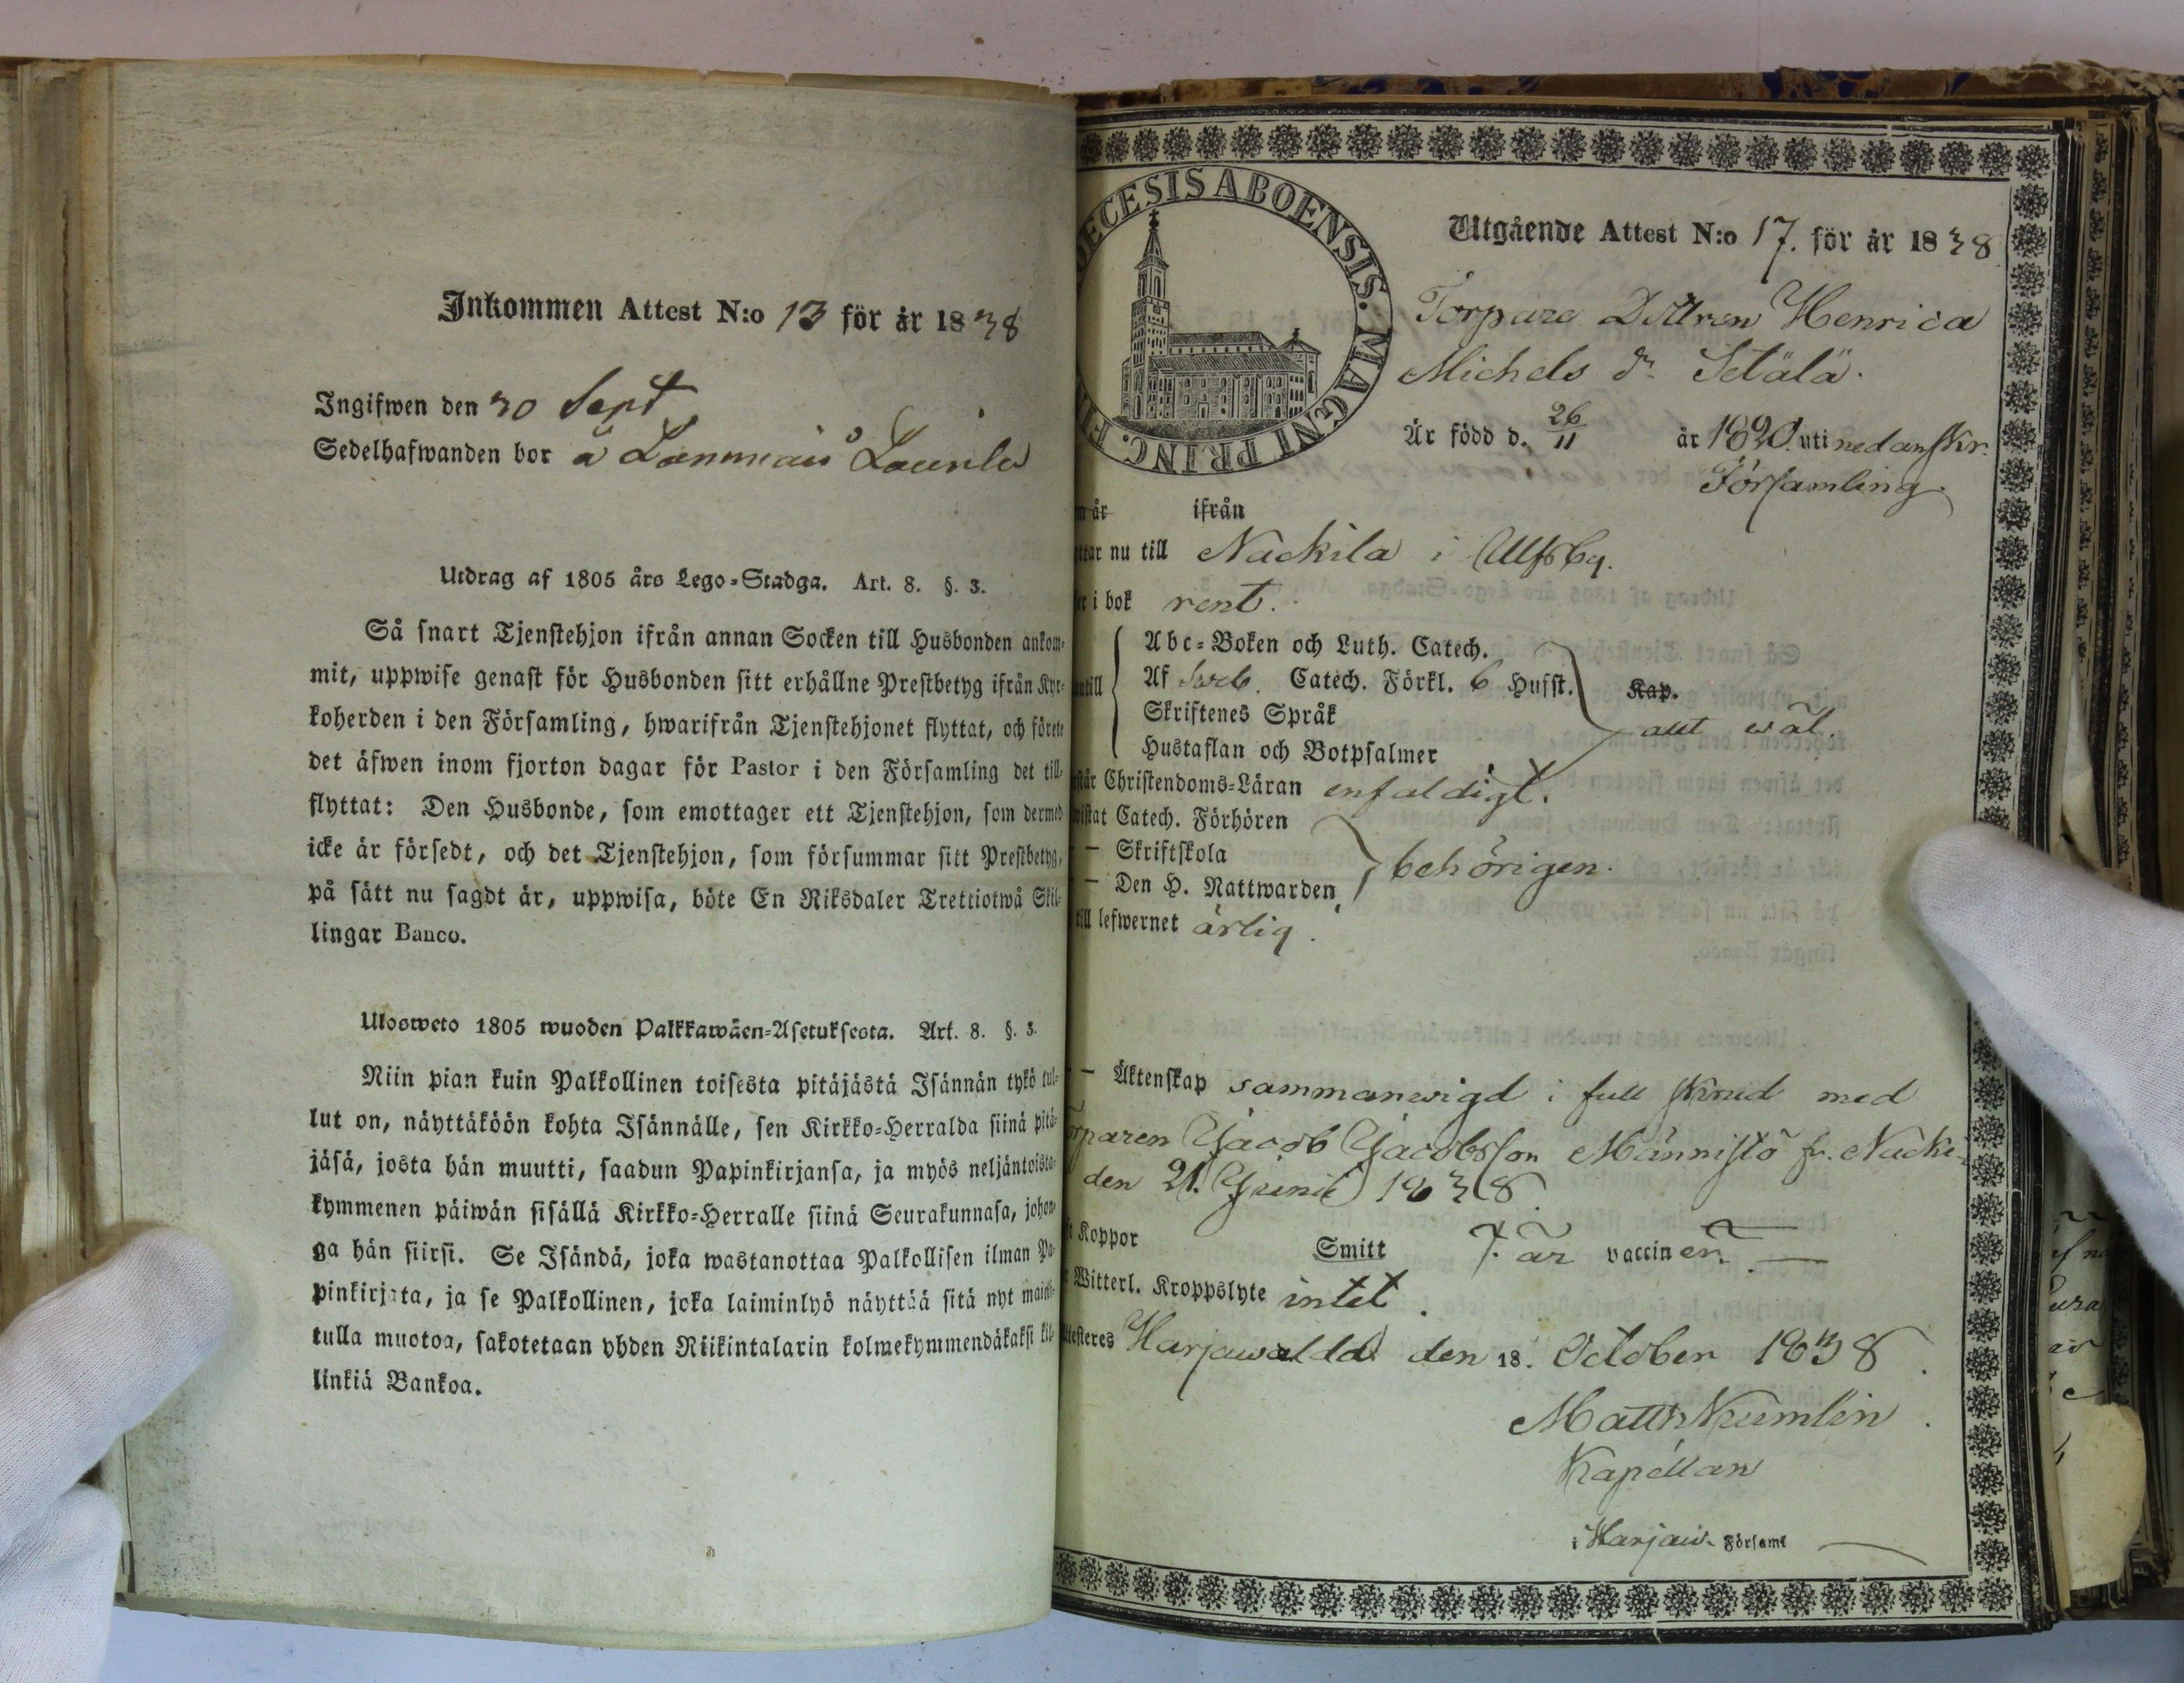 Inkommen Attest N:o 13 för år 1838
Ingifwen den 30 Sept
Sedelhafwanden bor å Lammais Laurila
Utdrag af 1805 års Lego-Stadga. Art. 8. §. 3.
Så snart Tjenstehjon ifrån annan Socken till Husbonden ankom-
mit, uppwise genast för Husbonden sitt erhållne Prestbetyg ifrån Kyr-
koherden i den Församling, hwarifrån Tjenstehjonet flyttat, och förete
det äfwen inom fjorton dagar för Pastor i den Församling det till-
flyttat: Den Husbonde, som emottager ett Tjenstehjon, som dermed
icke är försedt, och det Tjenstehjon, som försummar sitt Prestbetyg,
på sätt nu sagdt är, uppwisa, böte En Riksdaler Trettiotwå Skil-
lingar Banco.
Ulosweto 1805 wuoden Palkkawäen-Asetuksesta. Art. 8. §. 3.
Niin pian kuin Palkollinen toisesta pitäjästä Isännän tykö tul-
lut on, näyttäköön kohta Isännälle, sen Kirkko-Herralda siinä pitä-
jäsä, josta hän muutti, saadun Papinkirjansa, ja myös neljäntoista-
kymmenen päiwän sisällä Kirkko-Herralle siinä Seurakunnasa, johon-
ga hän siirsi. Se Isändä, joka wastanottaa Palkollisen ilman Pa-
pinkirjata, ja se Palkollinen, joka laiminlyö näyttää sitä nyt mainit-
tulla muotoa, sakotetaan yhden Riikintalarin kolmekymmendäkaksi kil-
linkiä Bankoa.
ECESIS ABOENSIS. MAGNI PRINC. FIN
Utgående Attest N:o 17. för år 1838
Torpare Dottren Henrica
Michels dr Setälä.
Är född d. 26/11 år 1820. uti nedanskr.
Församling.
år ifrån
ttar nu till Nackila i Ulfsby.
i bok rent.
Abc-Boken och Luth. Catech.
antill Af Sweb. Catech. Förkl. 6 Hufst. Kap.
Skriftenes Språk allt wäl.
Hustaflan och Botpsalmer
står Christendoms-Läran enfaldigt.
wistat Catech. Förhören
— Skriftskola behörigen.
— Den H. Nattwarden
till lefwernet ärlig.
— Äktenskap sammanwigd i full skrud med
Torparen Jacob Jacobsson Männistö fr. Nacki-
den 21. Junii 1838
Koppor Smitt är vaccinen.
Witterl. Kroppslyte intet.
Attesteres Harjawalda den 18. October 1838.
Matth Kumlin.
Kapellan
i Harjaw. Församl